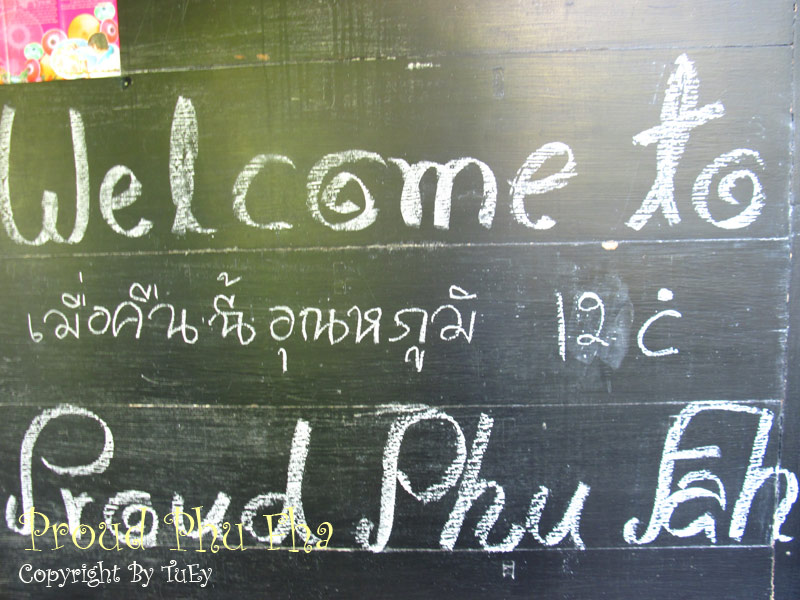 Welcome to
เมื่อคืนนี้ อุณหภูมิ 12 ċ
Proud Phu Fah
Proud Phu Fha
Copyright By TuEy